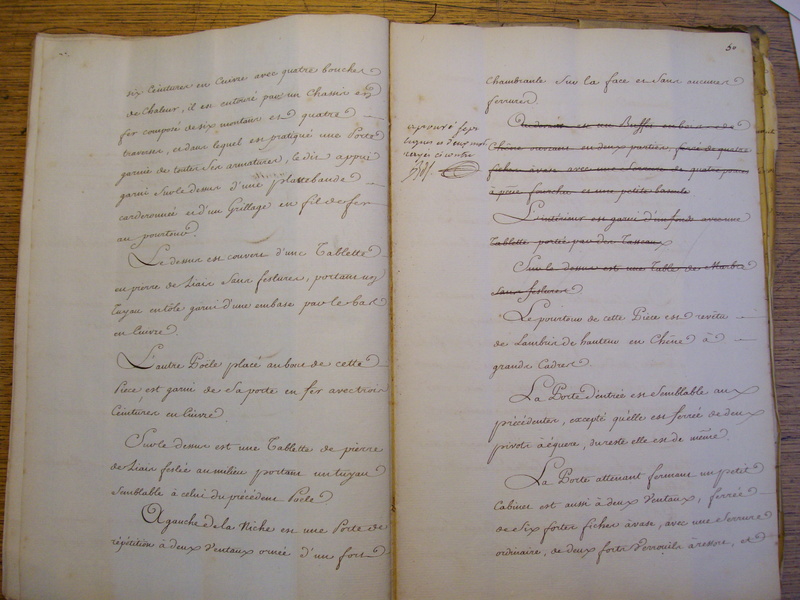 six Ceintures en Cuivre avec quatre bouches
de Chaleur, il est entouré par un Chassis en
fer composé de six montans et quatre
traverses, et dans lequel est pratiqué une Porte
garnie de toutes ses armatures, le dit appui
garni sur le dessus d'une plattebande
carderonnée et d'un Grillage en fil de fer
au pourtour.
Le dessus est couvert d'une Tablette
en pierre de Liais sans feslures, portant un
Tuyau en tôle garni d'une embase par le bas
en Cuivre.
L'autre Poële placé au bout de cette
Piece est garni de sa porte en fer avec trois
Ceintures en Cuivre
Sur le dessus est une Tablette de pierre
de Liais feslée au milieu portant un tuyau
semblable à celui du précédent Poële
A gauche de la Niche est une Porte de
répétition à deux Ventaux ornée d'un fort
50
chambranle sur la face et sans aucunes
ferrures.
est un Buffet en bas de
Chêne ouvrant en deux parties, ferré de quatre
fiches à vase avec une Serrure de quatre pouces
à pêne fourchu et une petite bascule
L'intérieur est garni d'un fond avec une
Tablette portée par des Tasseaux
Sur le dessus est une Table de Marbre
sans feslure
approuvé sept
lignes et deux mots
rayés ci contre
Le pourtour de cette Pièce est revêtu
de Lambris de hauteur en Chêne à
grands Cadres.
La Porte d'entrée est semblable aux
précédentes, excepté qu'elle est ferrée de deux
pivots à équerre, du reste elle est de même.
La Porte attenant fermant un petit
Cabinet est aussi à deux Ventaux, ferrée
de six fortes fiches à vase, avec une Serrure
ordinaire, de deux forts Verrouils à ressort, et